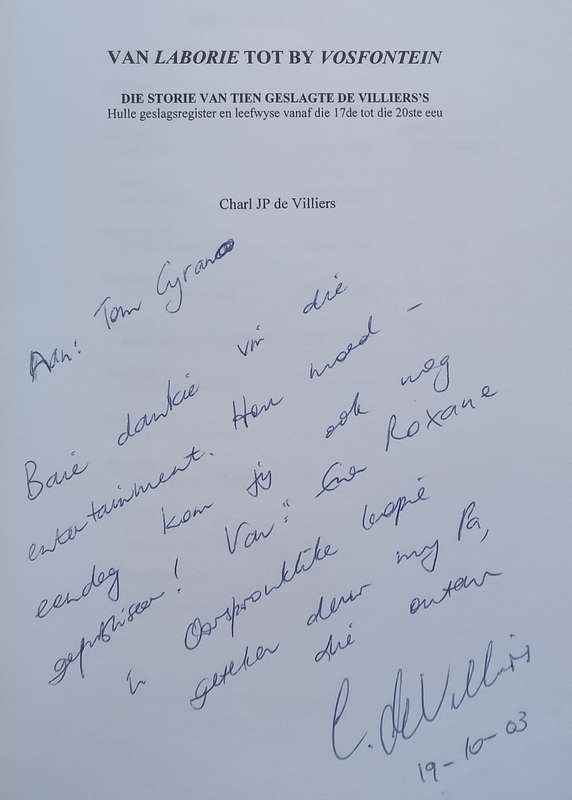 VAN LABORIE TOT BY VOSFONTEIN
DIE STORIE VAN TIEN GESLAGTE DE VILLIERS'S
Hulle geslagsregister en leefwyse vanaf die 17de tot die 20ste eeu
Charl JP de Villiers
Aan: Tom Cyrano
Baie dankie vir die
entertainment. Hou moed –
eendag kom jy ook nog
gepubliseer! Van: Roxane
'n Oorspronklike kopie
geteken deur my Pa,
die outeur
C. de Villiers
19-10-03